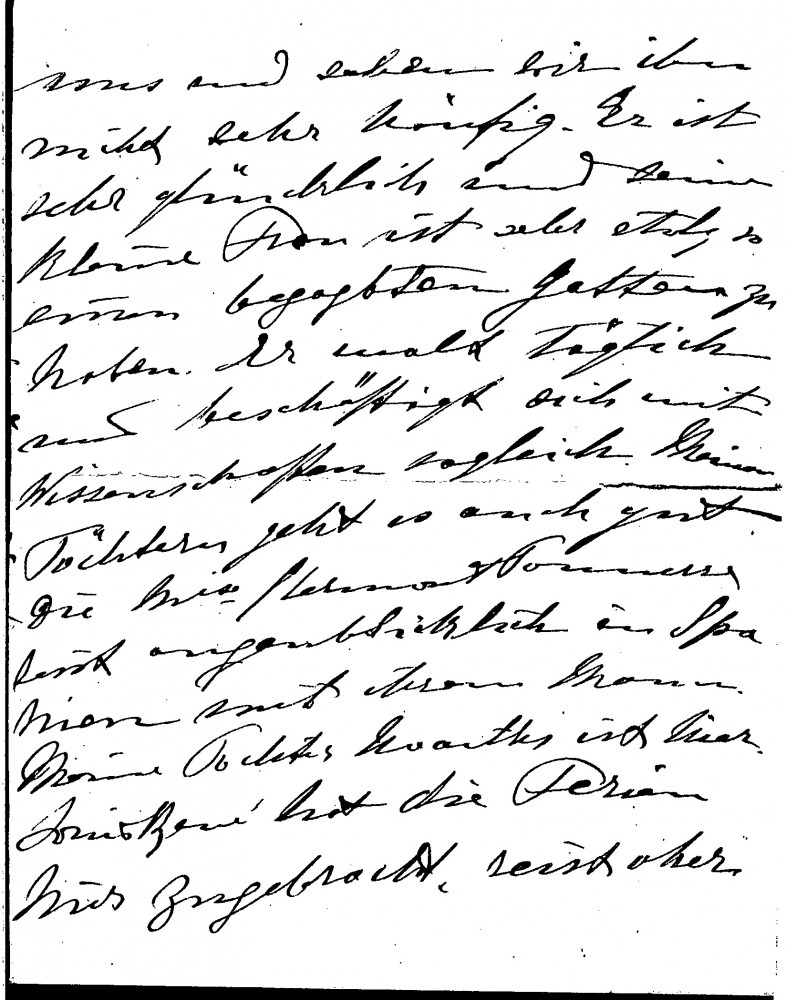 uns und sehen wir ihn
nicht sehr häufig. Er ist
sehr glücklich und seine
kleine Frau ist sehr stolz so
einen begabten Gatten zu
haben. Er malt täglich
und beschäftigt sich mit
Wissenschaften zugleich. Meinen
Töchtern geht es auch gut.
Die Clermont Tonnerre
reist augenblicklich in Spa
nien mit ihrem Mann.
Meine Tochter ist hier.
Louis René hat die Ferien
hier zugebracht, reist aber